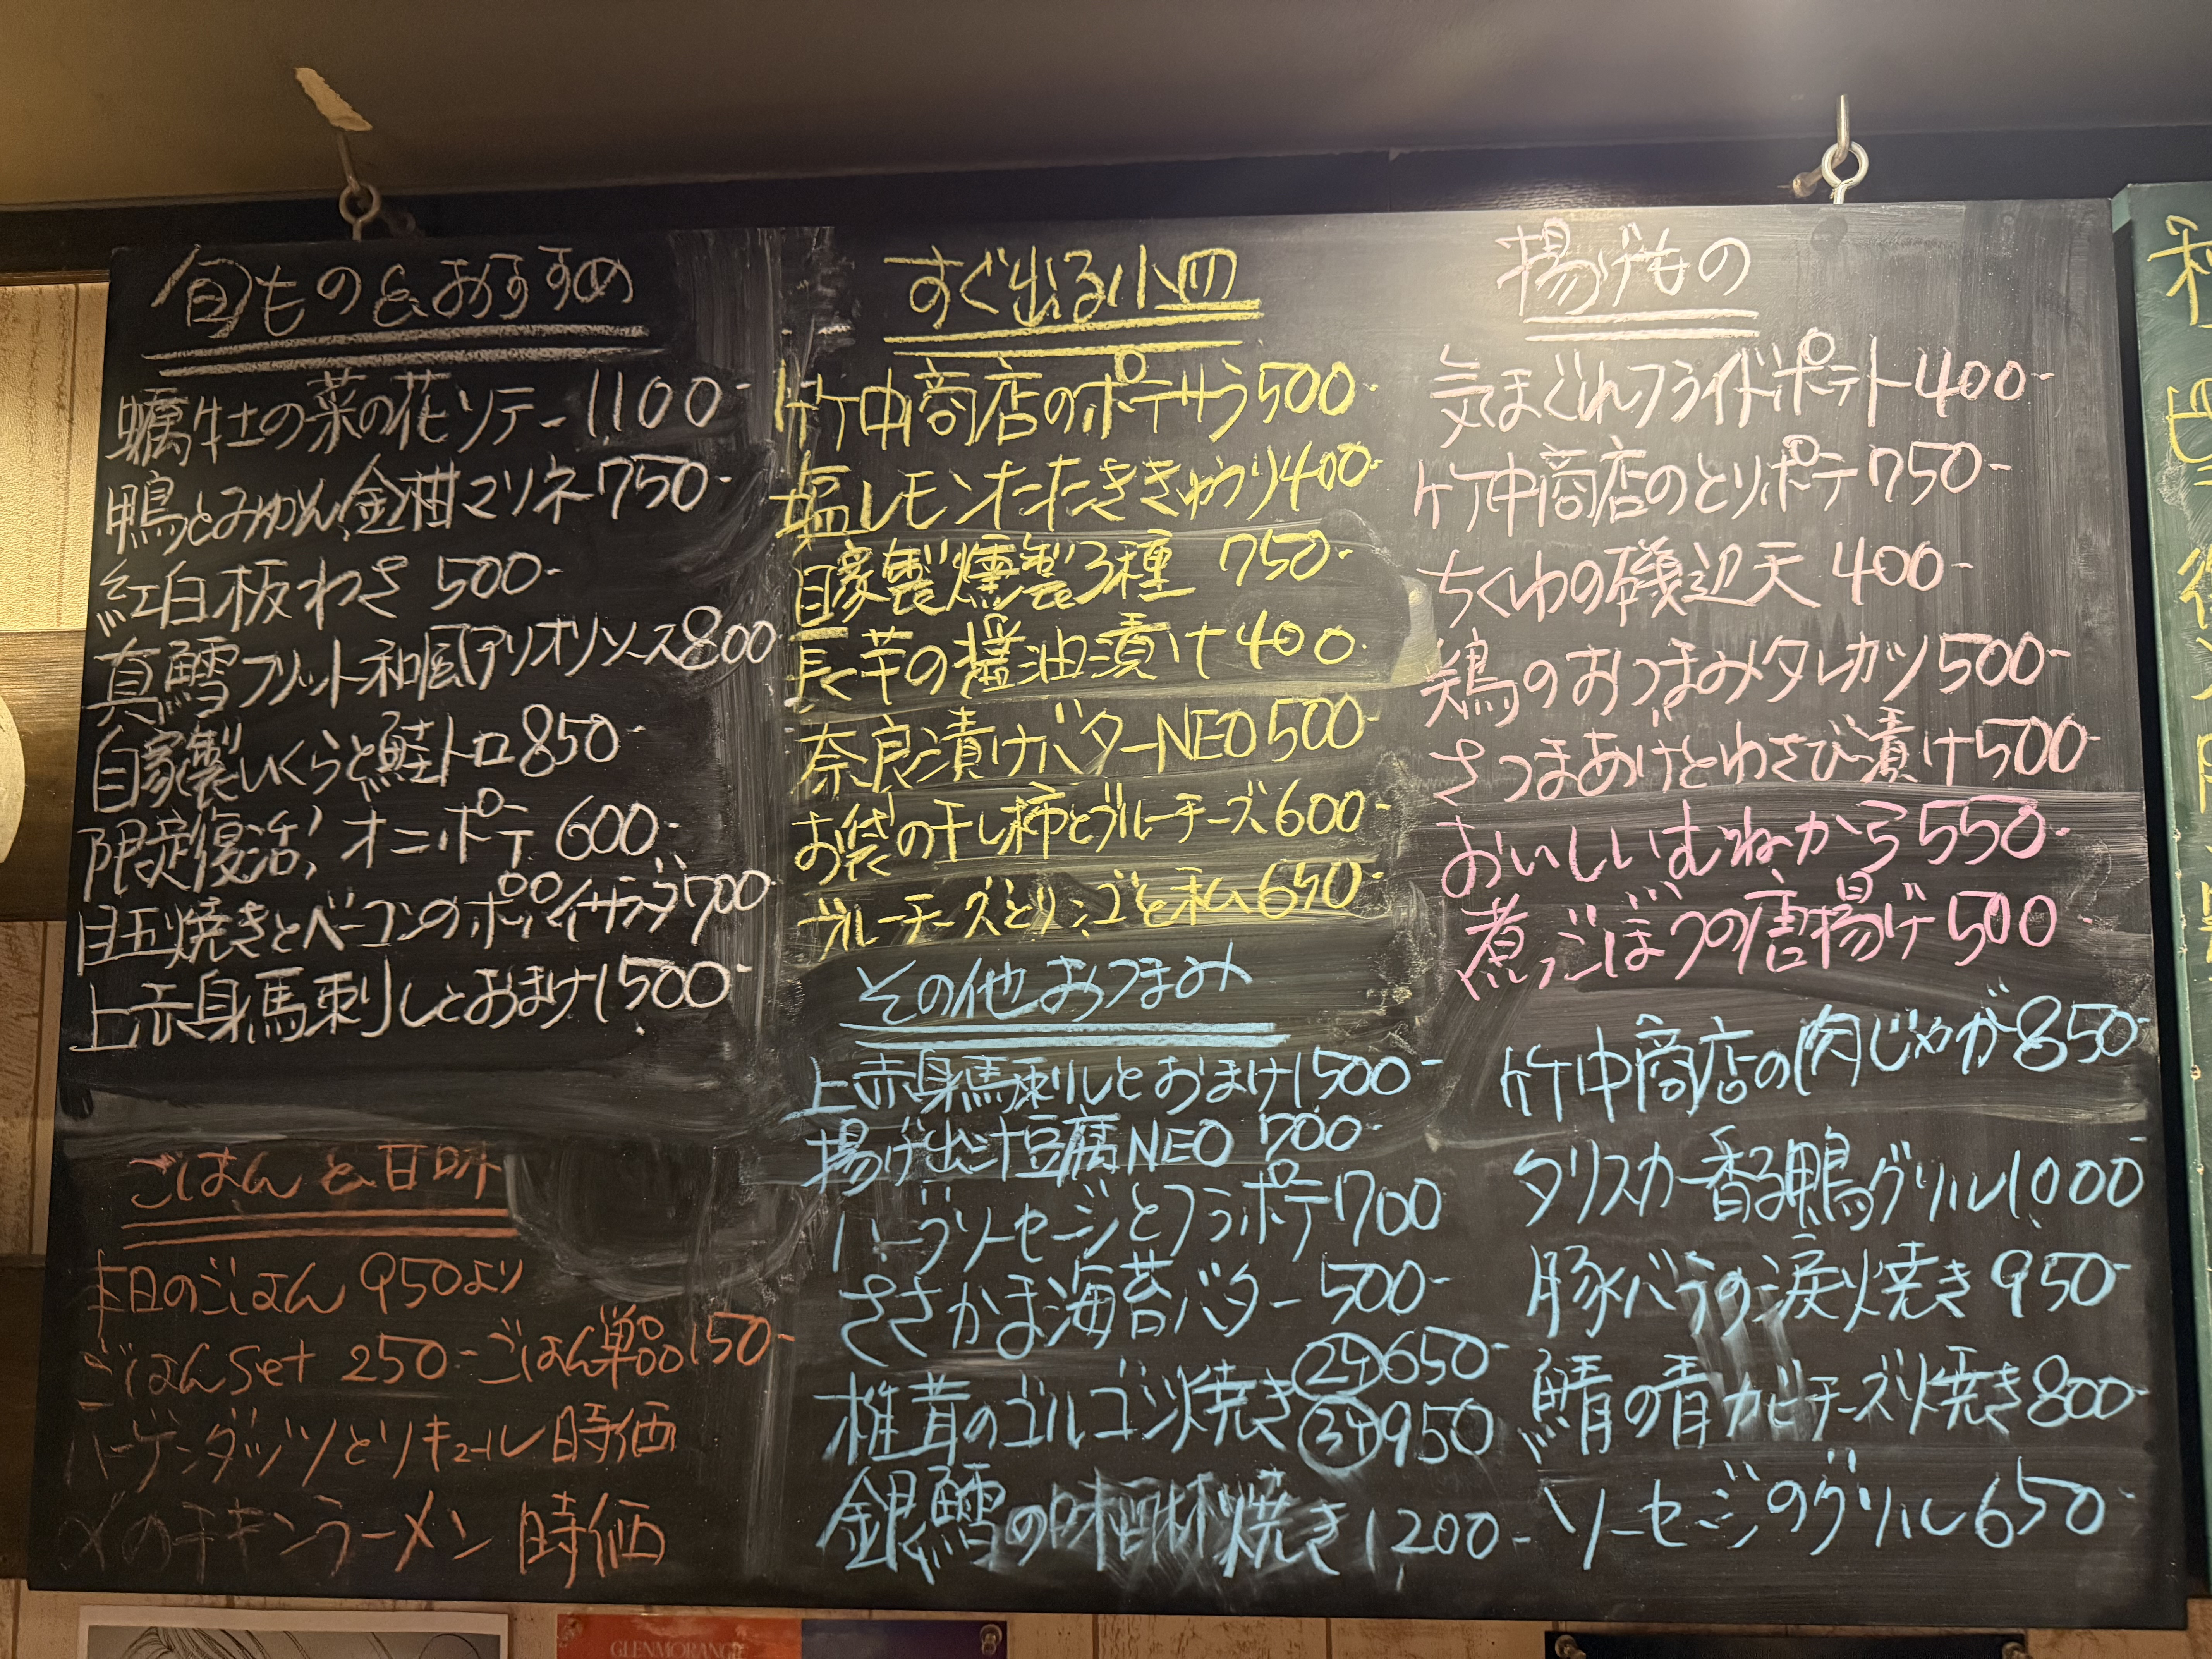 旬もの&おすすめ
蠣牡の菜の花ソテー1100-
鴨とみかん金柑マリネ750-
紅白板わさ 500-
真鱈フリット和風アリオリソース800
自家製いくらと鮭トロ850-
限定復活! オニポテ 600-
目玉焼きとベーコンのポパイサラダ700
上赤身馬刺しとおまけ1,500-
ごはん&甘味
本日のごはん 950より
ごはんSet 250- ごはん単品150-
ハーゲンダッツとリキュール 時価
〆のチキンラーメン 時価
すぐ出る小皿
竹中商店のポテサラ500-
塩レモンたたききゅうり400-
自家製燻製3種 750-
長芋の醤油漬け400.
奈良漬けバターNEO500-
お袋の干し柿とブルーチーズ600-
ブルーチーズとリンゴと私650-
その他おつまみ
上赤身馬刺しとおまけ1,500-
揚げ出汁豆腐NEO 700-
ハーブソーセージとフラポテ700
ささかま海苔バター 500-
椎茸のゴルゴン焼き ②ケ650-
③ケ950
銀鱈の味醂焼き1,200-
揚げもの
気まぐれフライドポテト400-
竹中商店のとりポテ750-
ちくわの磯辺天 400-
鶏のおつまみタレカツ500-
さつまあげとわさび漬け500-
おいしいむねから550-
煮ごぼうの唐揚げ500
竹中商店の肉じゃが850-
タリスカー香る鴨グリル1,000-
豚バラの涙焼き 950-
鯖の青カビチーズ焼き800-
ソーセージのグリル650-
GLENMORANGIE